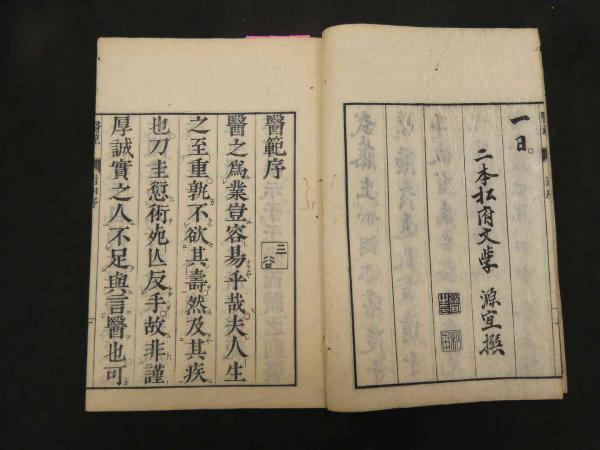 一日。
二本松府文學 源宜撰
醫範序
三谷
醫之爲業豈容易乎哉。夫人生
之至重孰不欲其壽然及其疾
也刀圭愆術死亾反手。故非謹
厚誠實之人不足與言醫也可
醫範